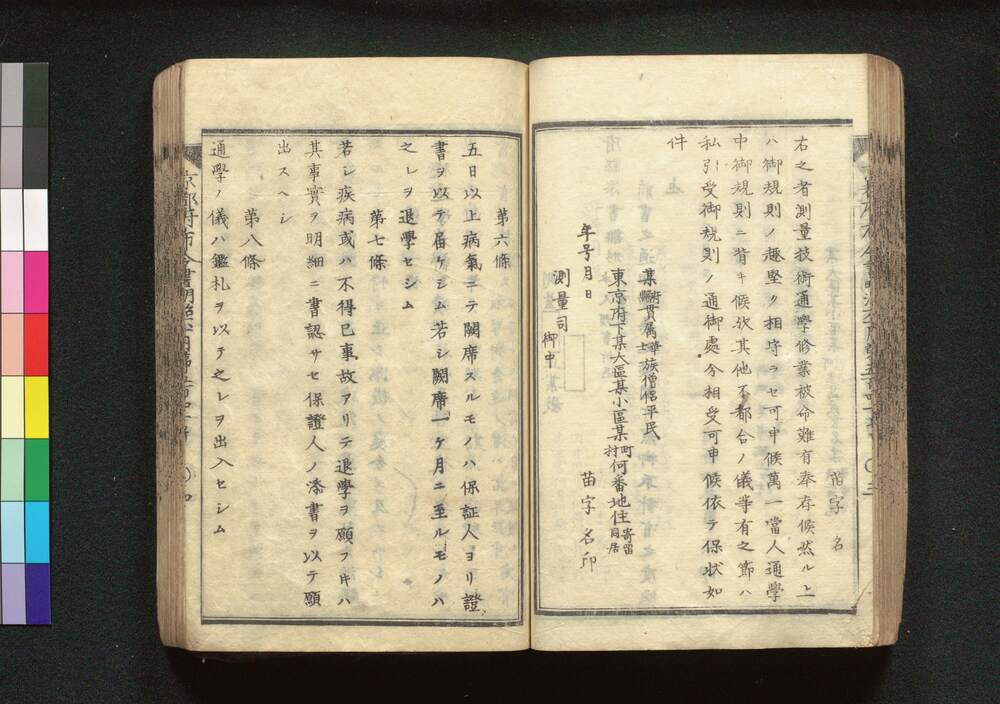 苗字 名
右之者測量技術通學修業被命難有奉存候然ル上
ハ御規則ノ趣堅ク相守ラセ可申候萬一當人通學
中御規則ニ背キ候歟其他不都合ノ儀等有之節ハ
私引受御規則ノ通御處分相受可申候依テ保状如
件
某府縣貫属華士族僧侶平民
東京府下某大區某小區某町村何番地住寄留同居
年号月日
苗字 名印
測量司
御中
第六條
五日以上病氣ニテ闕席スルモノハ保証人ヨリ證
書ヲ以テ届ケシム若シ闕席一ケ月ニ至ルモノハ
之レヲ退學セシム
第七條
若シ疾病或ハ不得已事故アリテ退學ヲ願フ時ハ
其事實ヲ明細ニ書認サセ保證人ノ添書ヲ以テ願
出スヘシ
第八條
通學ノ儀ハ鑑札ヲ以テ之レヲ出入セシム
京都府布令書明治六年